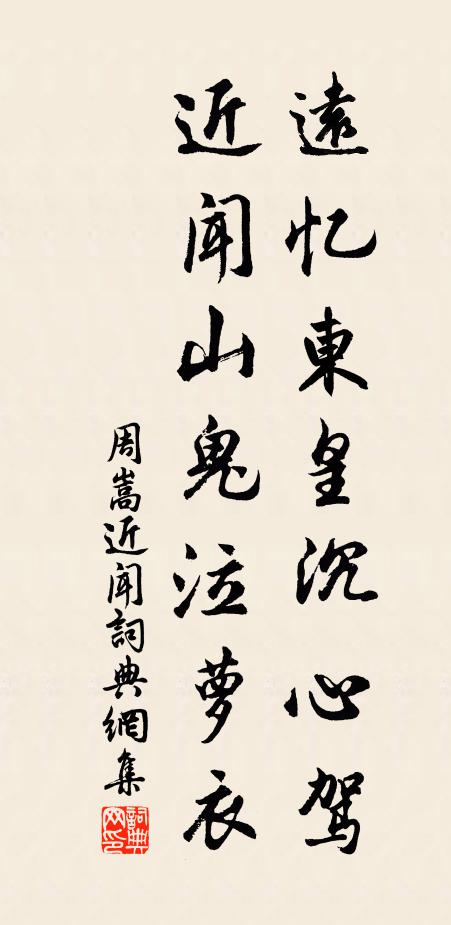 遠忆東皇沉心駕
近聞山鬼泣夢衣
周嵩近聞詞典網集
詞典網印